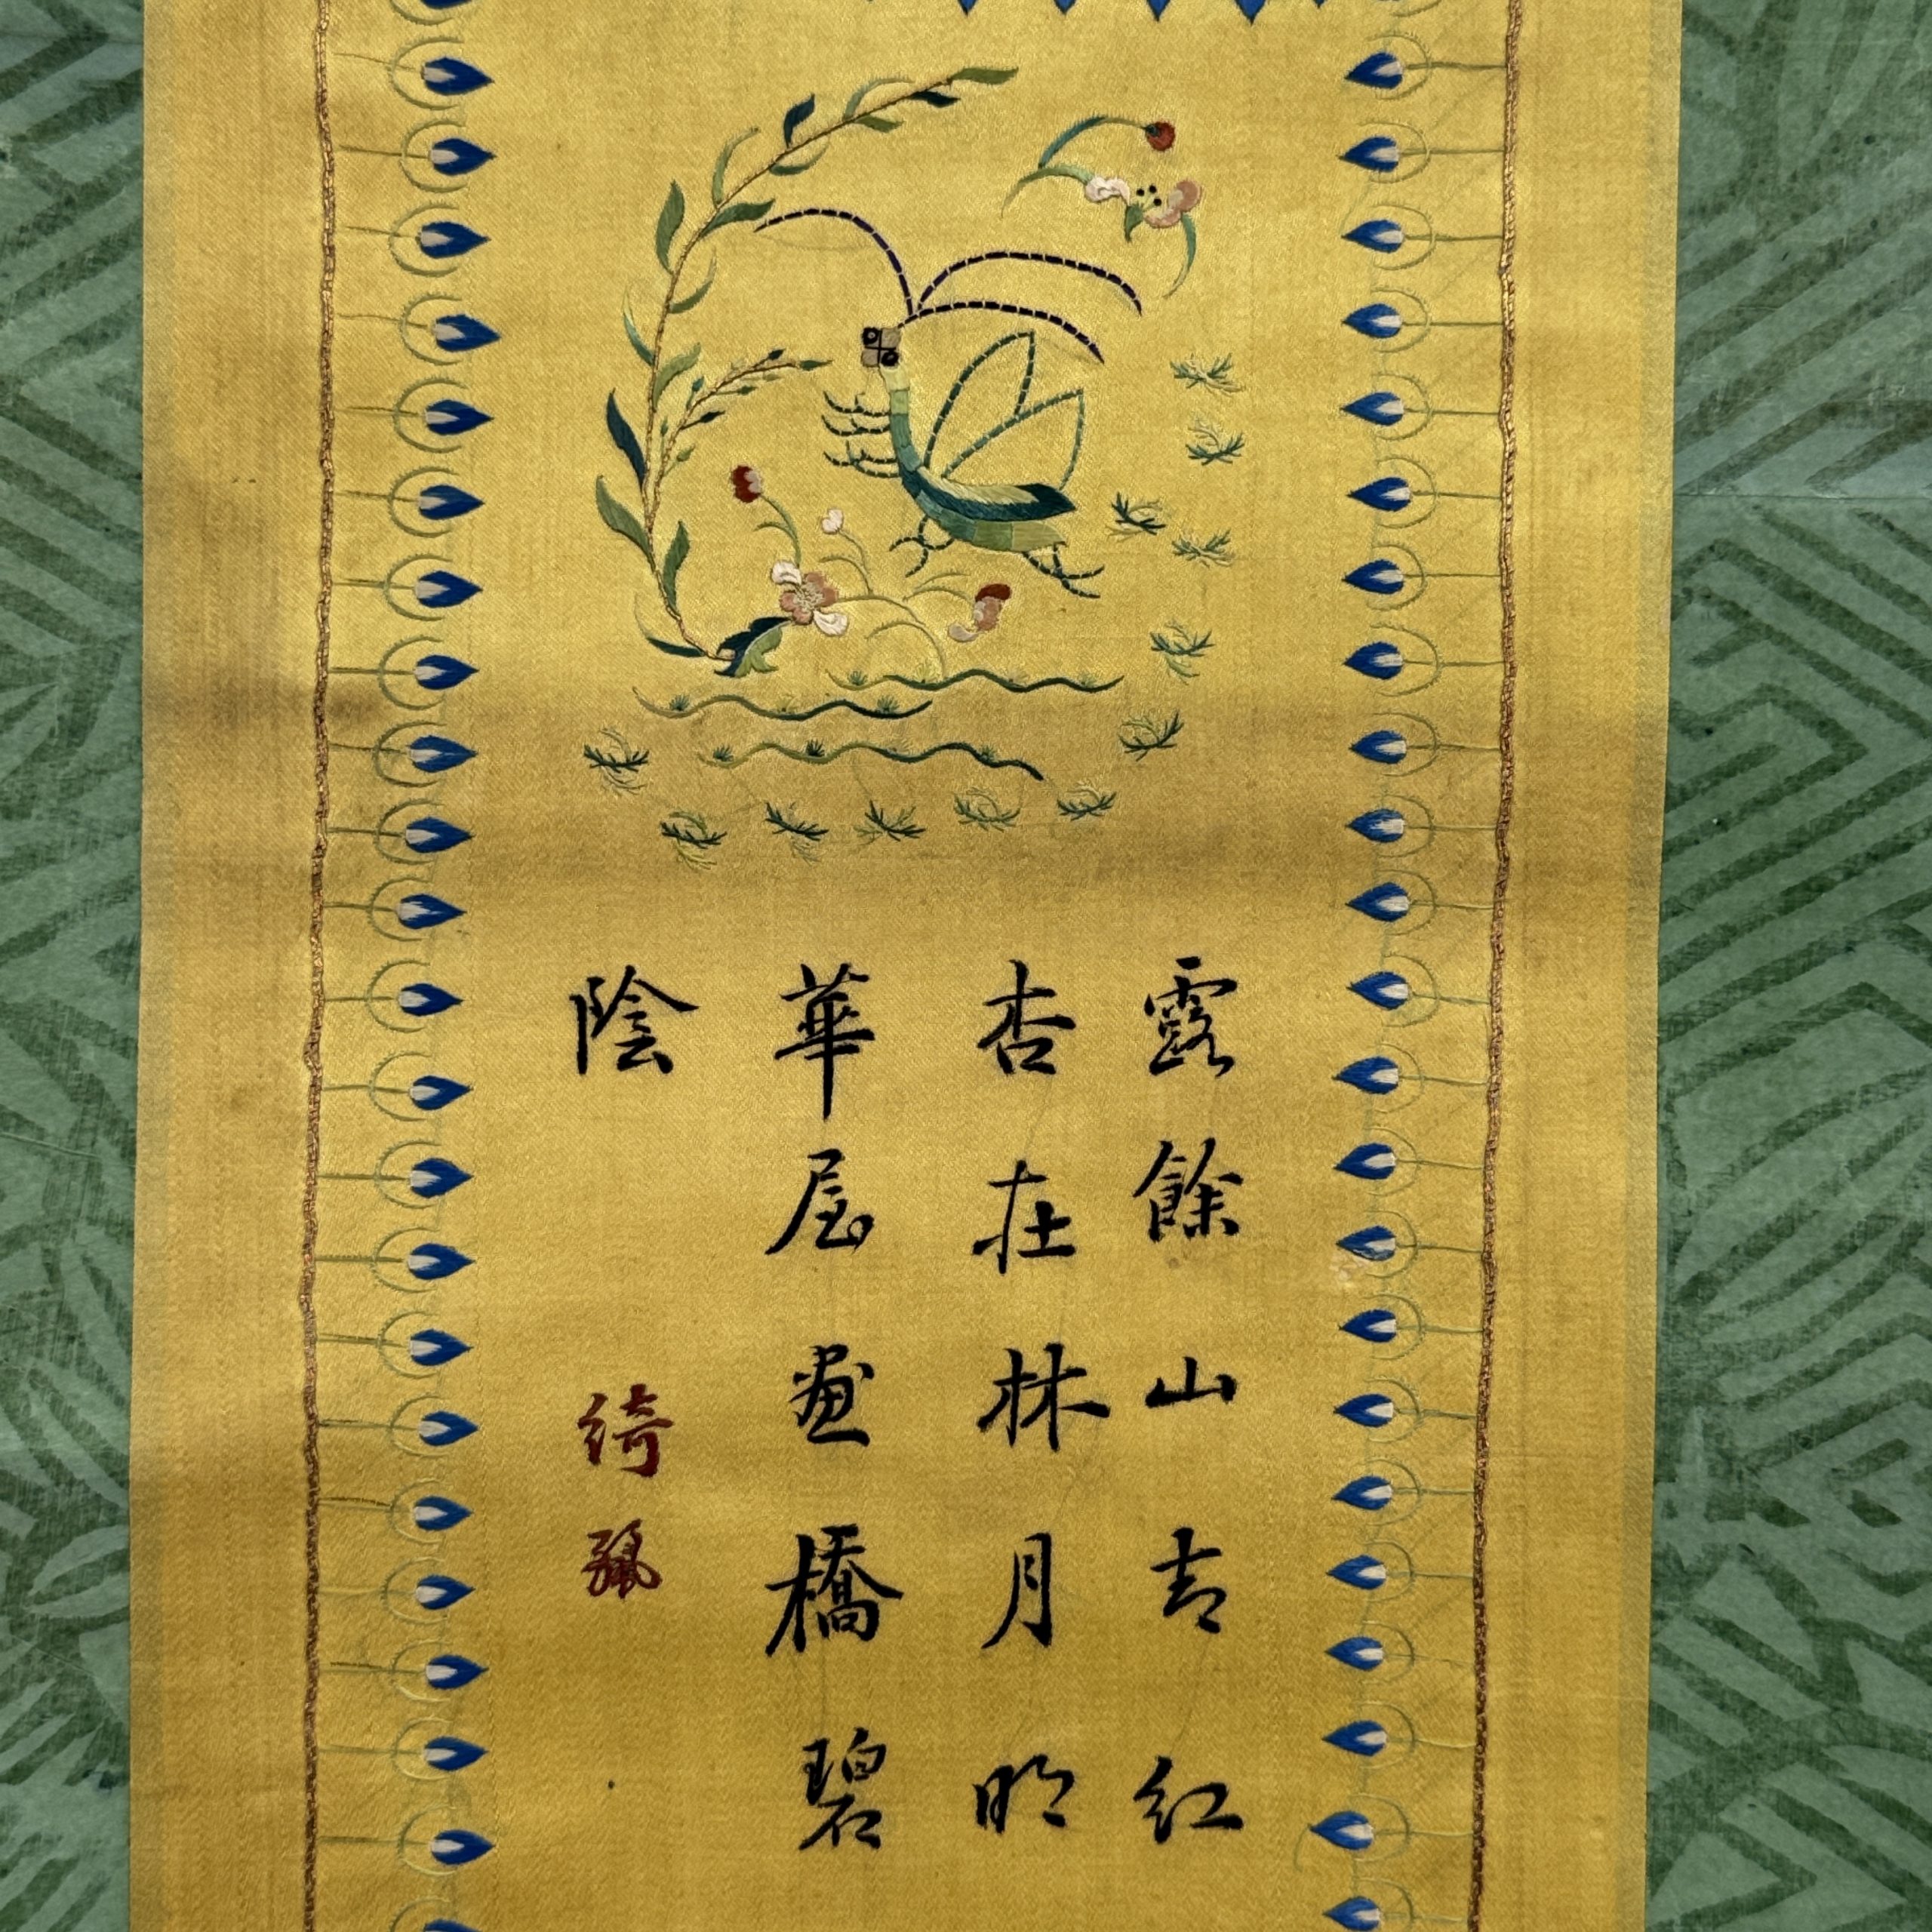 露餘山青紅
杏在林月明
華屋畫橋碧
陰
綺